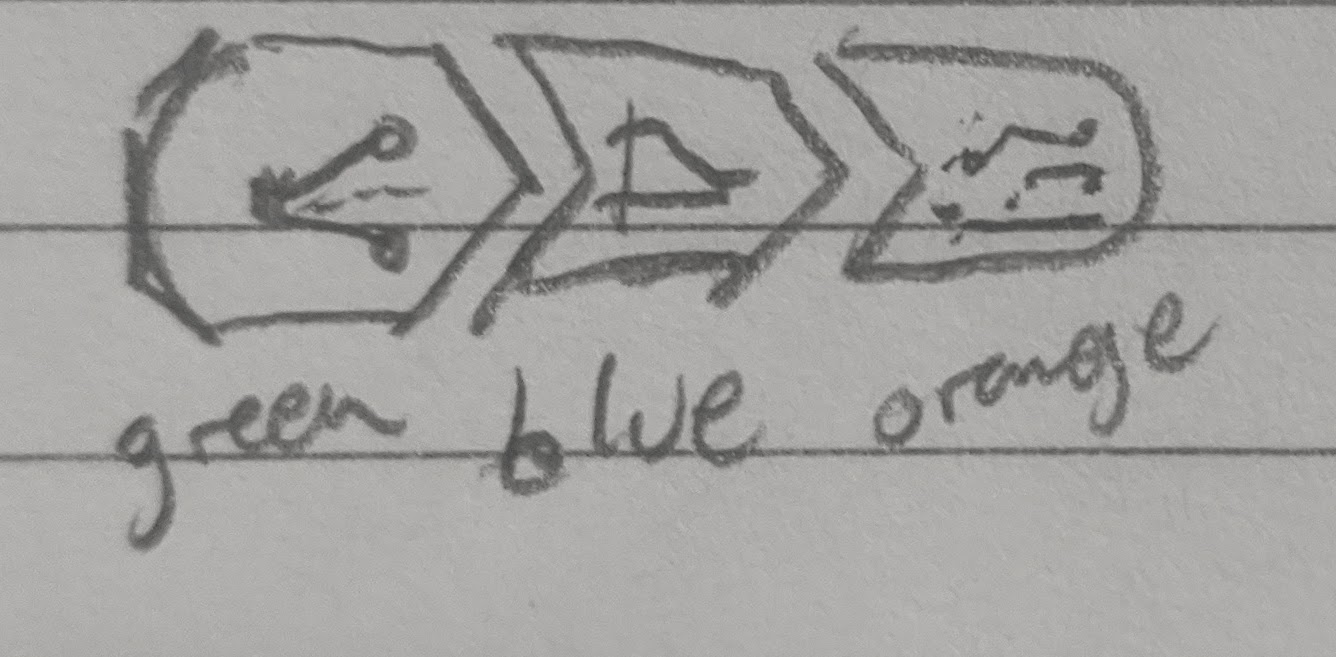 green blue orange